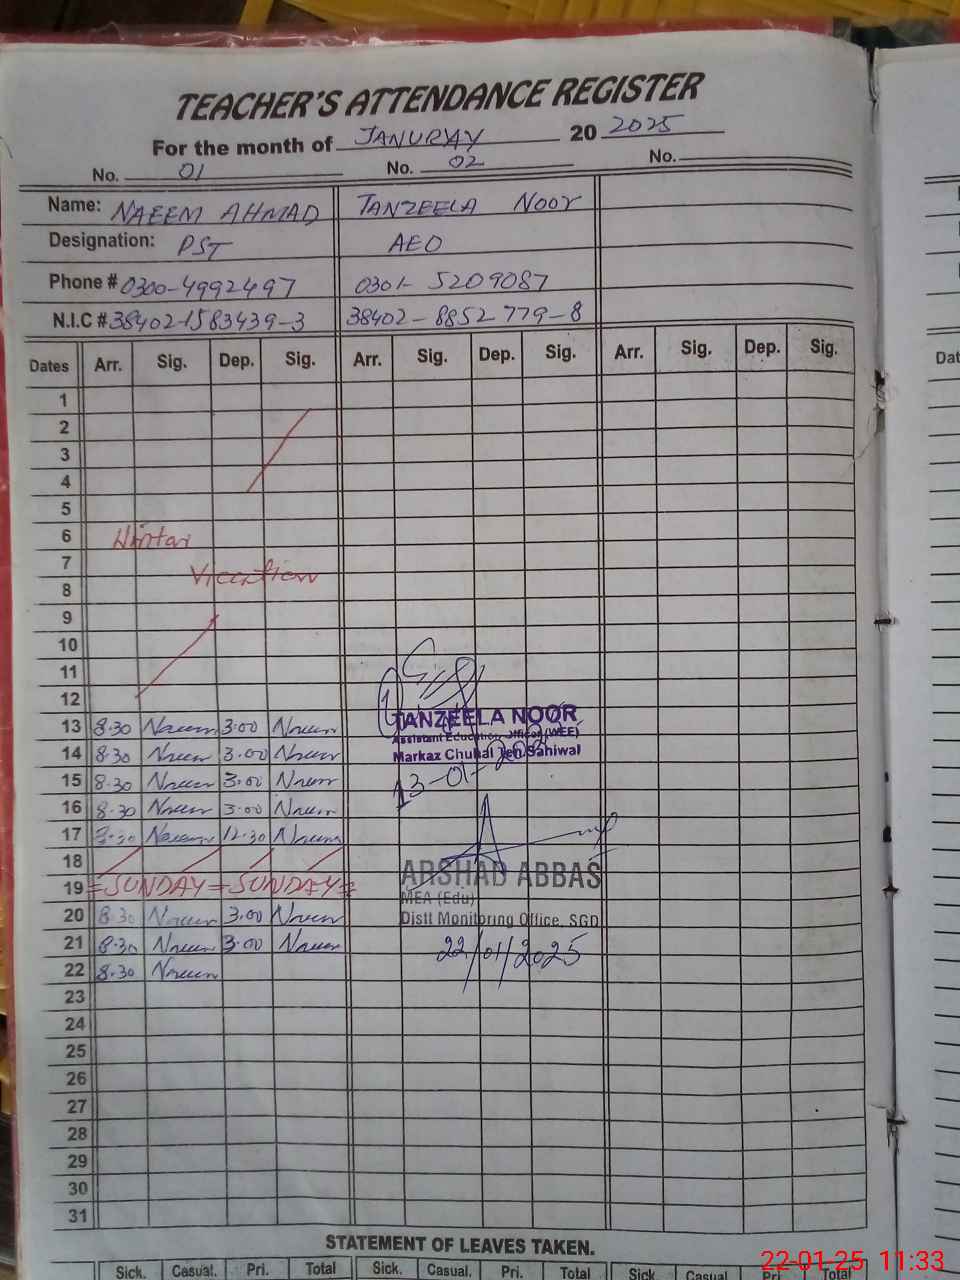 TEACHER'S ATTENDANCE REGISTER
For the month of JANURAY 20 2025
No. 01 No. 02 No.
Name: NAEEM AHMAD TANZEELA NOOR
Designation: PST AEO
Phone # 0300-4992497 0301-5209087
N.I.C # 38402-1583439-3 38402-8852779-8
Dates Arr. Sig. Dep. Sig. Arr. Sig. Dep. Sig. Arr. Sig. Dep. Sig.
1
2
3
4
5
6 Wintar
7 Vication
8
9
10
11
12
13 8.30 Naeem 3.00 Naeem TANZEELA NOOR
Assistant Education Officer (WEE)
14 8.30 Naeem 3.00 Naeem Markaz Chuhal Teh Sahiwal
15 8.30 Naeem 3.00 Naeem 13-01-2025
16 8.30 Naeem 3.00 Naeem
17 8.30 Naeem 12.30 Naeem
18 ARSHAD ABBAS
19 =SUNDAY=SUNDAY= MEA (Edu)
20 8.30 Naeem 3.00 Naeem Distt Monitoring Office, SGD
21 8.30 Naeem 3.00 Naeem 22/01/2025
22 8.30 Naeem
23
24
25
26
27
28
29
30
31
STATEMENT OF LEAVES TAKEN.
Sick. Casual. Pri. Total Sick. Casual. Pri. Total Sick. Casual. Pri. Total
Dat
22-01-25 11:33